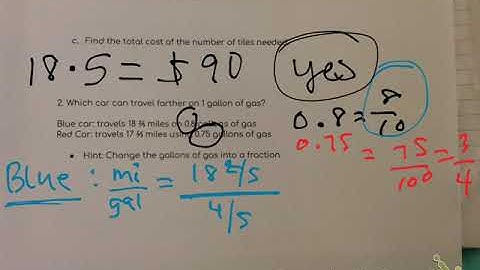 c. Find the total cost of the number of tiles needed
18 · 5 = $90
yes
2. Which car can travel farther on 1 gallon of gas?
Blue car: travels 18 ⅖ miles on 0.8 gallons of gas
Red Car: travels 17 ⅖ miles using 0.75 gallons of gas
0.8 = 8/10
0.75 = 75/100 = 3/4
• Hint: Change the gallons of gas into a fraction
Blue: mi/gal = 18 2/5 / 4/5